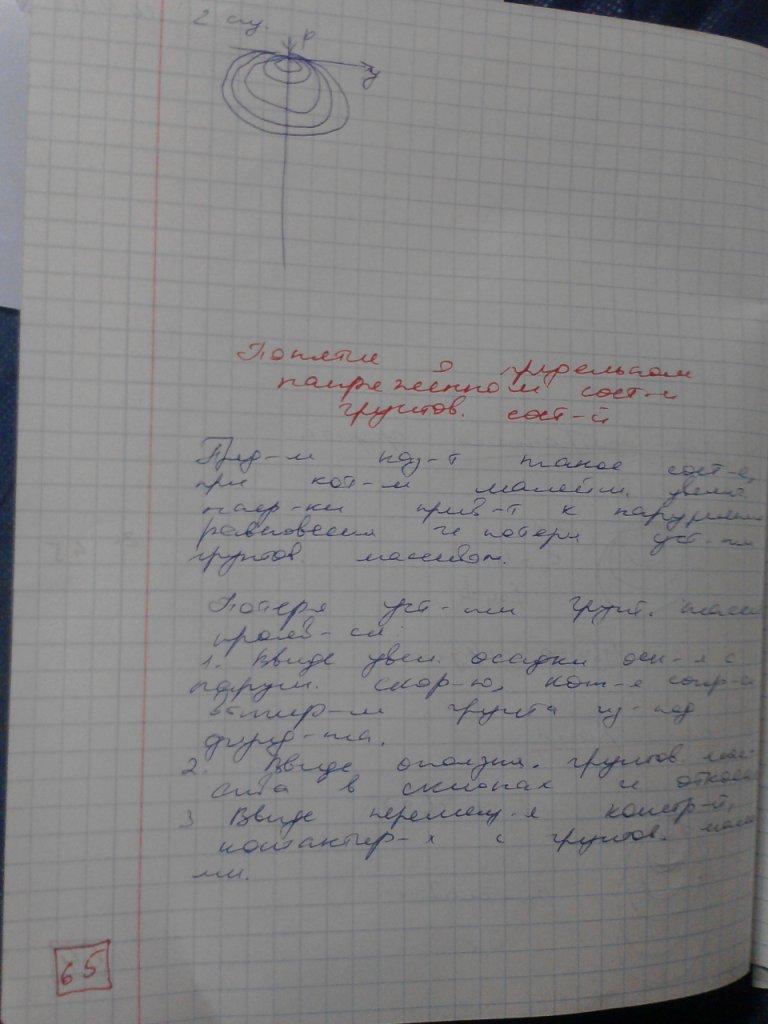 2 сл.
P
y
Понятие о предельном
напряжённом сост-и
грунтов. сост-й
Пред-м наз-т такое сост-е,
при кот-м малейш. увелич.
нагр-ки прив-т к нарушению
равновесия и потери уст-ти
грунтов массивом.
Потеря уст-ти грунт.
прояв-ся:
1. Ввиде увел. осадки осн-я с
скор-ю, кот-я сопр-ся
выпир-м грунта из-под
фунд-та.
2. Ввиде оползня. грунтов. мас-
сива в склонах и откосах
3 Ввиде перемещ-я констр-й,
контактир-х с грунтов. масса
ми.
65